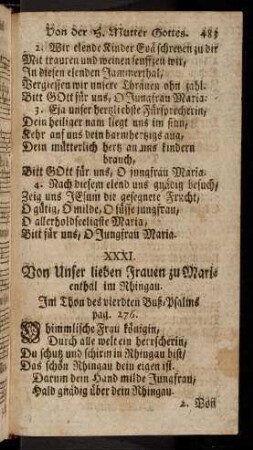 Von der H. Mutter Gottes. 483
2. Wir elende Kinder Evä schreyen zu dir
Mit trauren und weinen seuffzen wir,
In diesen elenden Jammerthal,
Vergiessen wir unsere Thränen ohn zahl.
Bitt GOtt für uns, O Jungfrau Maria.
3. Eja unser hertzliebste Fürsprecherin,
Dein heiliger nam liegt uns im sinn,
Kehr auf uns dein barmhertzigs aug,
Dein mütterlich hertz an uns kindern
brauch,
Bitt GOtt für uns, O jungfrau Maria.
4. Nach diesem elend uns gnädig besuch,
Zeig uns JEsum die gesegnete Frucht,
O gütig, O milde, O süsse jungfrau,
O allerholdseeligste Maria,
Bitt für uns, O Jungfrau Maria.
XXXI.
Von Unser lieben Frauen zu Mari-
enthal im Rhingau.
Im Thon des vierdten Buß-Psalms
pag. 276.
O himmlische Frau königin,
Durch alle welt ein herrscherin,
Du schutz und schirm in Rhingau bist,
Das schön Rhingau dein eigen ist.
Darum dein Hand milde Jungfrau,
Hald gnädig über dein Rhingau.
2. Von